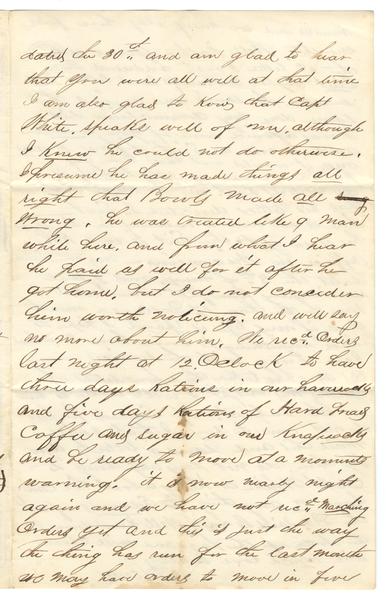 dated the 30th. and am glad to hear
that you were all well at that time
I am also glad to Know that Capt
White. speaks well of me. although
I Knew he could not do otherwise.
I presume he has made things all
right that Bowls made all
wrong. he was treated like a man
while here. and from what I hear
he paid us well for it after he
got home. but I do not consider
him worth noticeing. and will say
no more about him. We recd. Orders
last night at 12. Oclock to have
three days Rations in our haversacks
and five days Rations of Hard Bread
Coffee and sugar in our Knapsacks
and be ready to move at a moments
warning. it is now nearly night
again and we have not recd. Marching
Orders yet and this is just the way
the thing has run for the last month
we may have orders to move in five